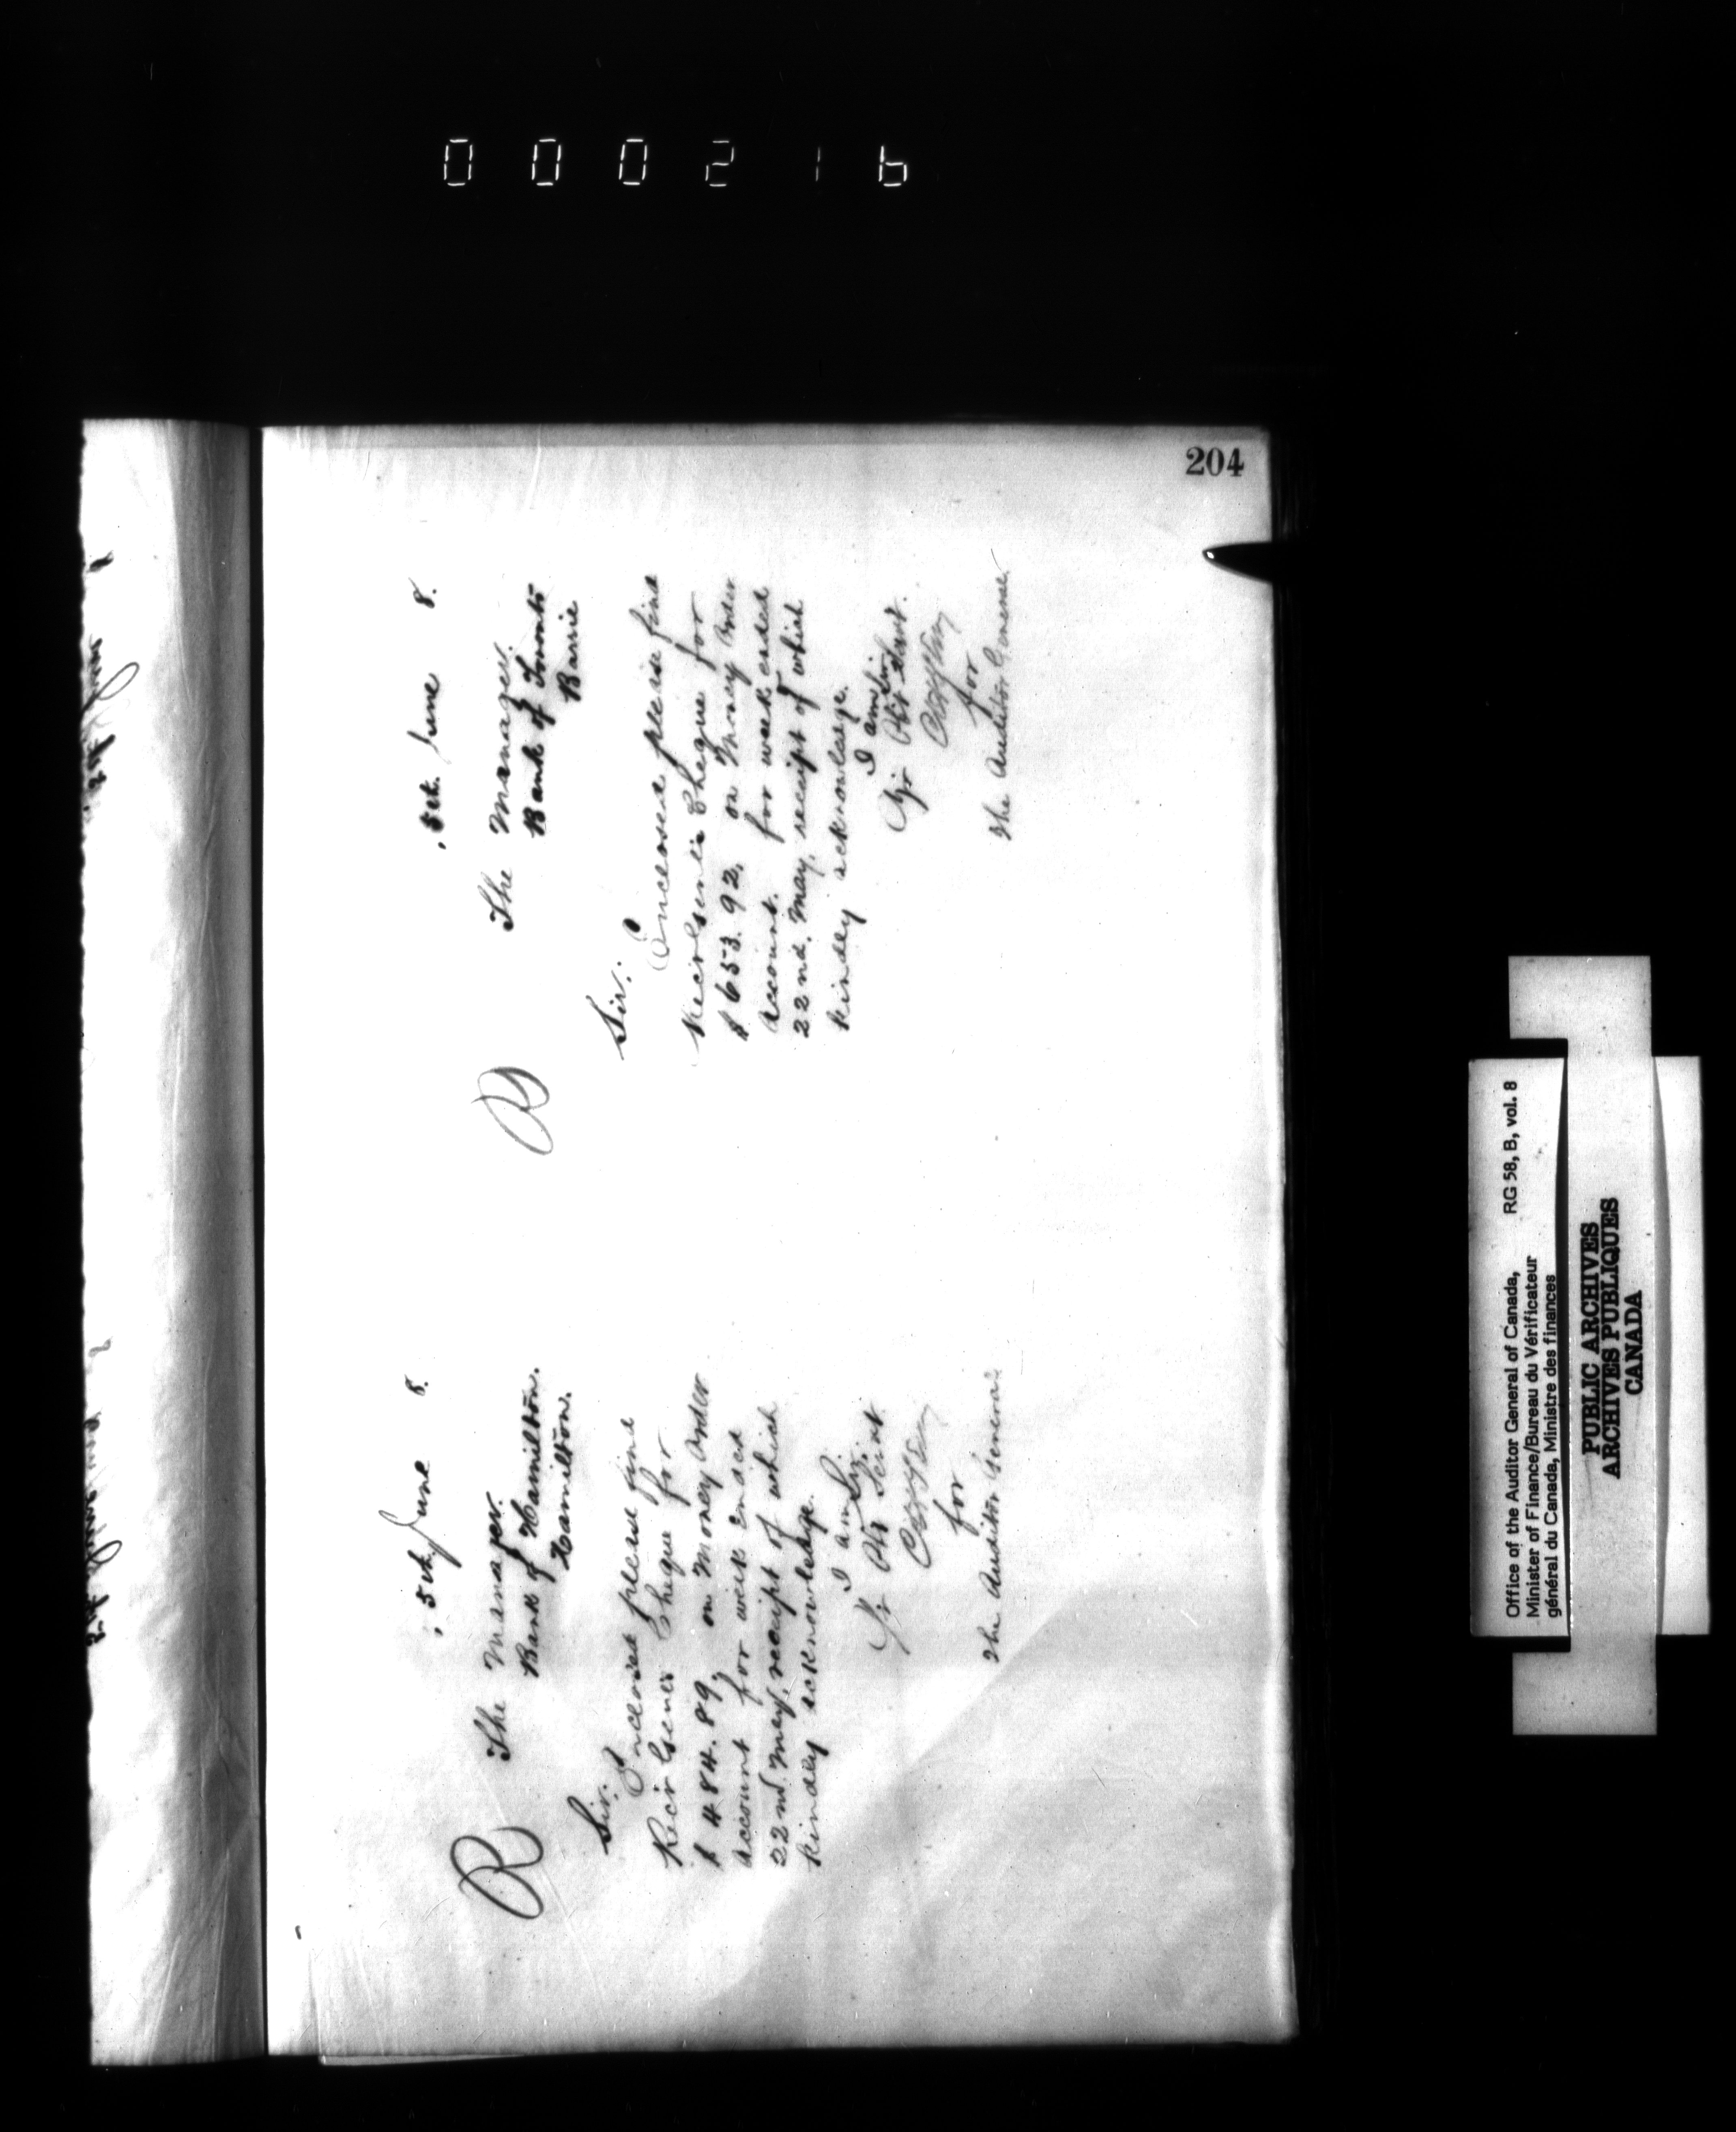 000216
204
5th June 8.
The Manager.
Bank of Hamilton.
Hamilton.
Sir.
Enclosed please find
Recr Genl's Cheque for
$484.89, on Money Order
Account for week ended
22nd May, receipt of which
kindly acknowledge.
I am Sir.
Yr Obt Servt
for
The Auditor General
5th. June 8.
The Manager.
Bank of Toronto
Barrie
Sir:
Enclosed please find
Recr Genl's Cheque for
$653.92, on Money Order
Account. for week ended
22nd. May, receipt of which
kindly acknowledge.
I am Sir.
Yr Obt Servt.
for
The Auditor General
Office of the Auditor General of Canada, RG 58, B, vol. 8
Minister of Finance/Bureau du Vérificateur
général du Canada, Ministre des finances
PUBLIC ARCHIVES
ARCHIVES PUBLIQUES
CANADA